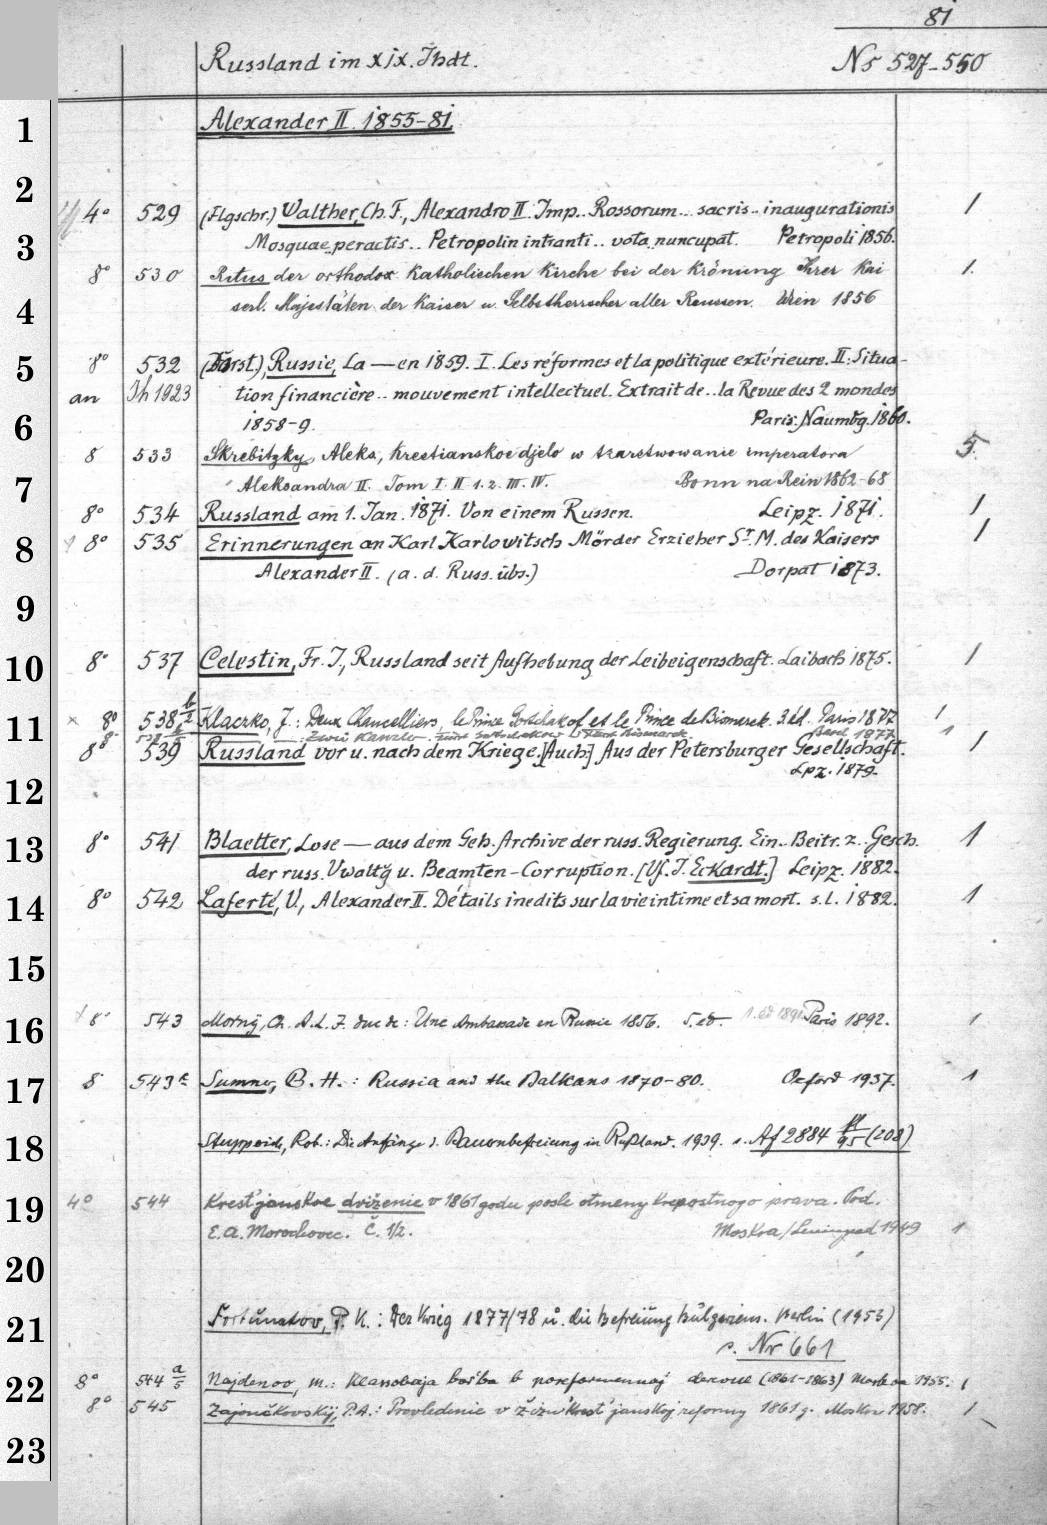 81
Russland im XIX. Jhdt. Nr 527-550
1 Alexander II. 1855-81.
2
4° 529 (Flgschr.) Walther, Ch. F., Alexandro II. Imp.. Rossorum... sacris.. inaugurationis 1
3 Mosquae peractis.. Petropolin intranti.. vota nuncupat. Petropoli 1856.
8° 530 Ritus der orthodox Katholischen Kirche bei der Krönung Ihrer Kai 1.
4 serl. Majestäten der Kaiser u. Selbstherrscher aller Reussen. Wien 1856
5 8° 532 Russie, La — en 1859. I. Les réformes et la politique extérieure. II: Situa-
an Jh 1923 tion financière.. mouvement intellectuel. Extrait de.. la Revue des 2 mondes
6 1858-9. Paris: Naumbg. 1860.
8 533 Skrebitzky, Aleks, Krestianskoe djelo w tzarstwowanie imperatora 5.
7 Aleksandra II. Tom I. II 1. 2. III. IV. Bonn na Rein 1862-68
8° 534 Russland am 1. Jan. 1871. Von einem Russen. Leipz. 1871. 1
8 8° 535 Erinnerungen an Karl Karlowitsch Mörder Erzieher Sr. M. des Kaisers 1
Alexander II. (a. d. Russ. übs.) Dorpat 1873.
9
10 8° 537 Celestin, Fr. J., Russland seit Aufhebung der Leibeigenschaft. Laibach 1875. 1
11 × 8° 538 b/2 Klaczko, J.: Deux Chancelliers, le Prince Gortschakof et le Prince de Bismarck. 3 éd. Paris 1877 1
8° : Zwei Kanzler. Fürst Gortschakow u. Fürst Bismarck. Basel 1877 1
8° 539 Russland vor u. nach dem Kriege. [Auch:] Aus der Petersburger Gesellschaft. 1
12 Lpz. 1879.
13 8° 541 Blaetter, Lose — aus dem Geh. Archive der russ. Regierung. Ein.. Beitr. z. Gesch. 1
der russ. Vwaltg u. Beamten-Corruption. [Vf. J. Eckardt.] Leipz. 1882.
14 8° 542 Laferté, V., Alexander II. Détails inedits sur la vie intime et sa mort. s. l. 1882. 1
15
16 8° 543 Morny, Ch. A. L. J. duc de: Une Ambassade en Russie 1856. 5. ed. 1. ed 1891 Paris 1892. 1
17 8 543 a Sumner, B. H.: Russia and the Balkans 1870-80. Oxford 1937. 1
18 Stupperich, Rob.: Die Anfänge d. Bauernbefreiung in Rußland. 1939. s. Af 2884 /95 (208)
19 4° 544 Krest'janskoe dviženie v 1861 godu posle otmeny krepostnogo prava. Pod.
E. A. Morochovec. Č. 1/2. Moskva/Leningrad 1949 1
20
21 Fortunatov, P. K.: Der Krieg 1877/78 u. die Befreiung Bulgariens. Berlin (1953)
s. Nr 661
22 8° 544 a/5 Najdenov, M.: Klassovaja bor'ba v poreformennoj derevne (1861-1863) Moskva 1955. 1
8° 545 Zajončkovskij, P. A.: Provedenie v žizn' krest'janskoj reformy 1861 g. Moskva 1958. 1
23